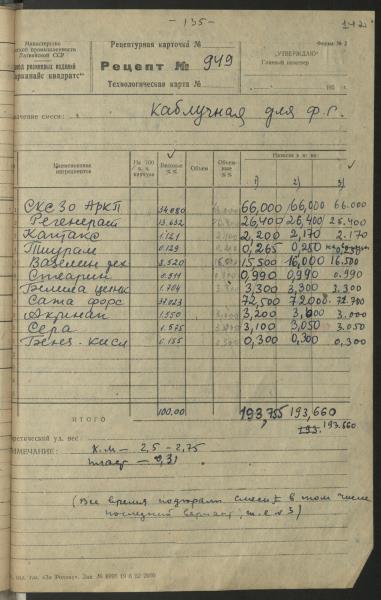 — 135 —
142
Министерство
промышленности
Латвийской ССР
резиновых изделий
"Варкапайс квадратс"
Рецептурная карточка №
Рецепт № 949
Технологическая карта №
Форма № 2
"УТВЕРЖДАЮ"
Главный инженер
195 г.
Каблучная для Ф.Г.
значение смеси:
Наименование ингредиентов
На 100 в. ч. каучука
Весовые %%
Объем
Объемные %%
Навеска в кг на:
1) 2) 3)
СКС 30 АРКП 34.080 66,000 66,000 66.000
Регенерат 13.632 26,400 26,400 26.400
Каптакс 1.121 2,200 2,170 2.170
Тиурам 0.129 0,265 0,250
Вазелин 8.520 15,500 16,000 16.500
Стеарин 0.511 0,990 0,990 0.990
Белила цинк 1.704 3,300 3,300 3.300
Сажа форс 72,500 72.700
1.550 3,200 3,600 3.000
Сера 1.575 3,100 3,050 3.050
Бенз. кисл 0.155 0,300 0,300 0,300
ИТОГО 100,00 193,755 193,660
193. 193.660
ул. вес
К.М — 2,5 - 2,75
ПРИМЕЧАНИЕ:
пласт — 0,31
(Все время подгорали смеси, в том числе
последний вариант, т.е. № 3)